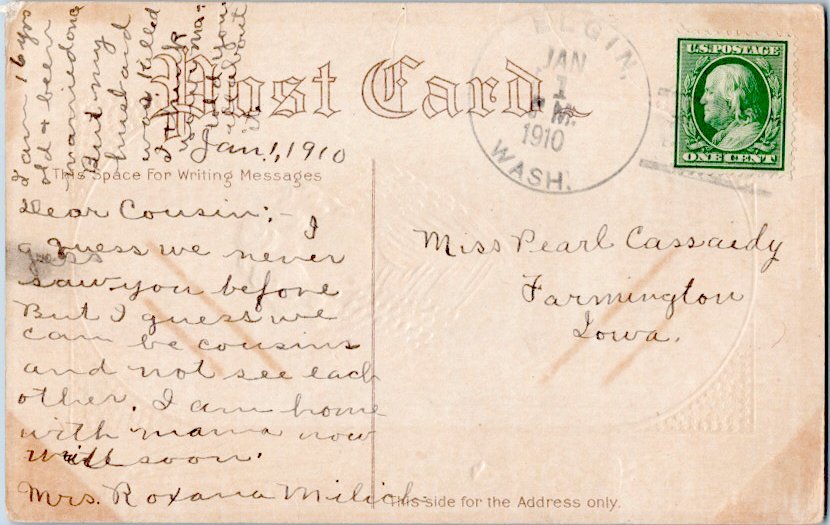 I am 16 yrs
old & been
married once
But my
husband
was killed
I think
mama
told you
about
it
Post Card
Jan. 1, 1910
This Space For Writing Messages
Dear Cousin:- I
guess we never
saw you before
But I guess we
can be cousins
and not see each
other. I am home
with mama now
write soon.
Mrs. Roxana Milich
ELGIN,
JAN
1
P M.
1910
WASH.
U.S. POSTAGE
ONE CENT
Miss Pearl Cassaidy
Farmington
Iowa.
This side for the Address only.